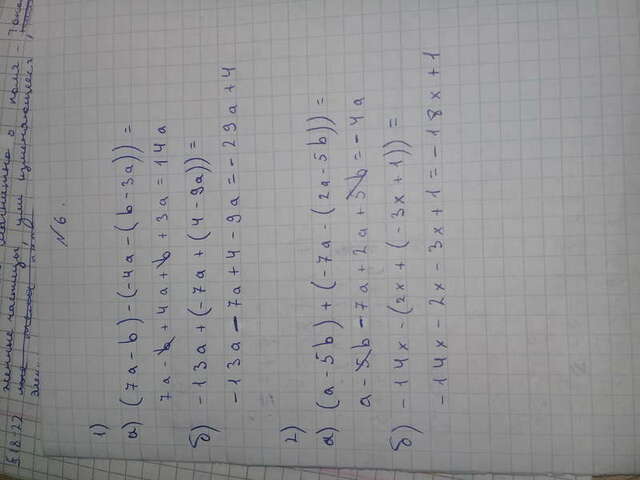 § 18-22
N6.
1)
а) (7a - b) - (-4a - (b - 3a)) =
7a - b + 4a + b + 3a = 14a
б) - 13a + (-7a + (4 - 9a)) =
- 13a - 7a + 4 - 9a = - 29a + 4
2)
а) (a - 5b) + (-7a - (2a - 5b)) =
a - 5b - 7a + 2a + 5b = - 4a
б) - 14x - (2x + (-3x + 1)) =
- 14x - 2x - 3x + 1 = - 18x + 1